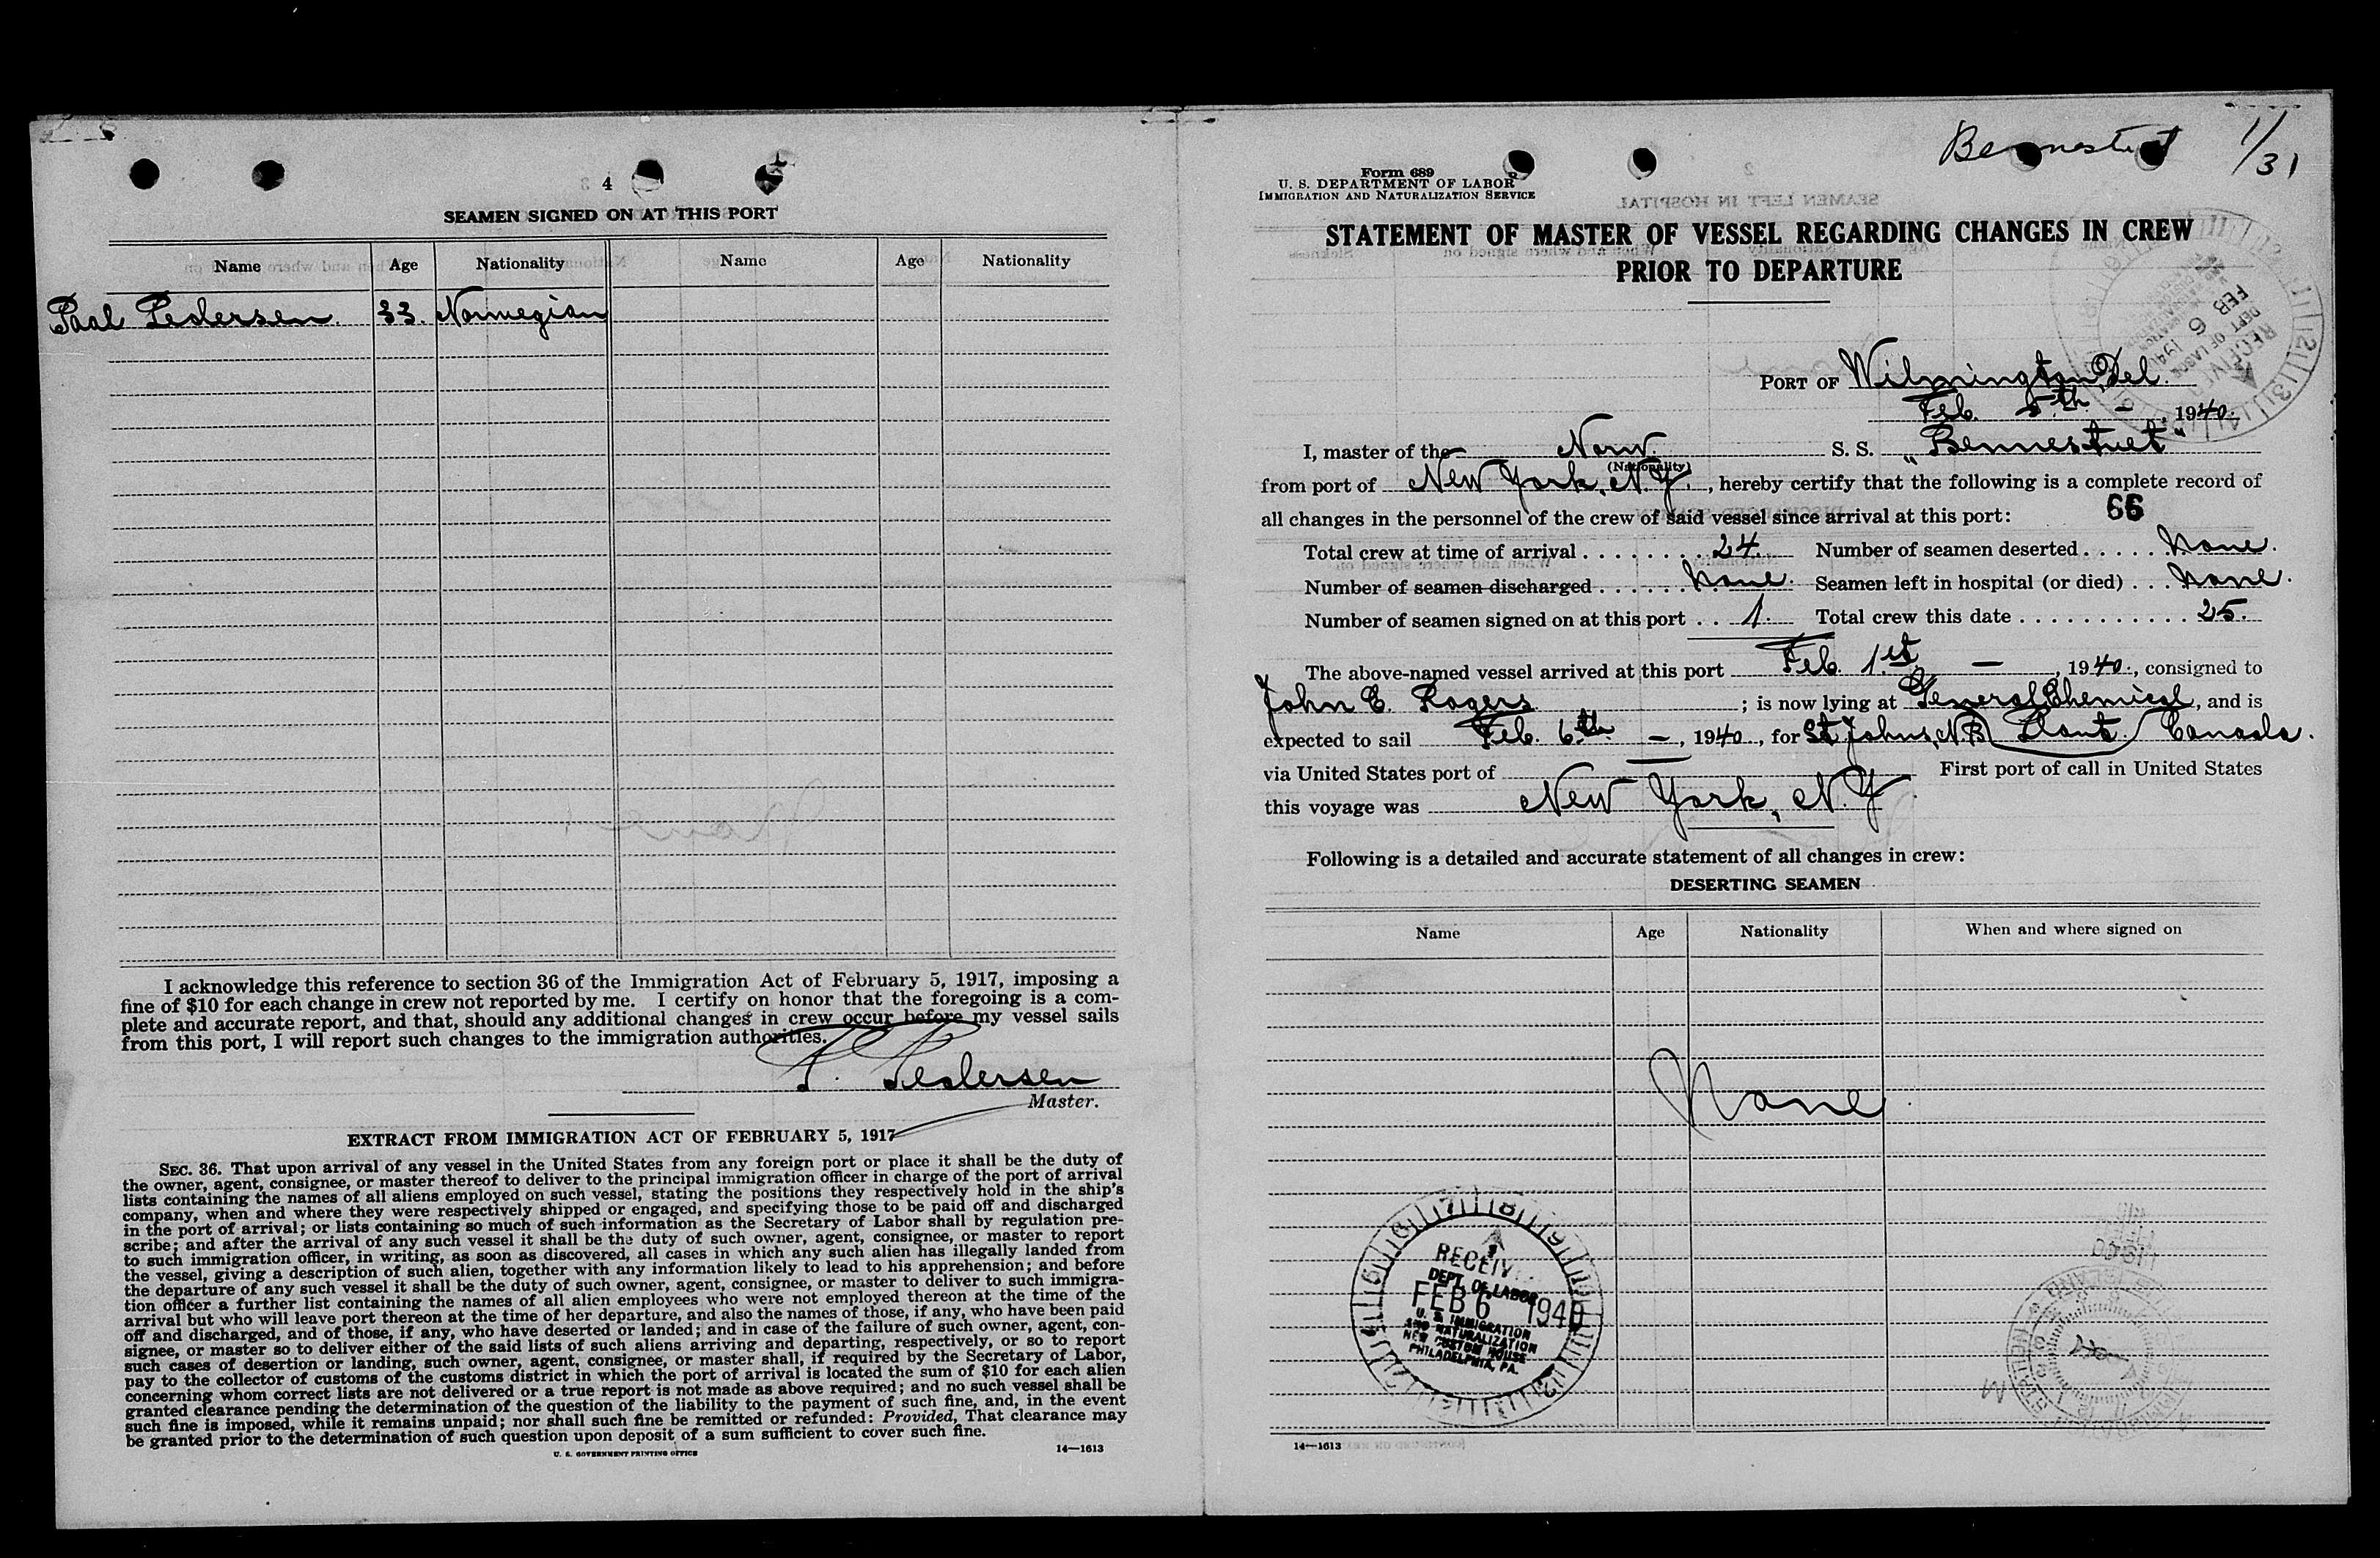 4
SEAMEN SIGNED ON AT THIS PORT
Name Age Nationality Name Age Nationality
Paal Pedersen. 33. Norwegian
I acknowledge this reference to section 36 of the Immigration Act of February 5, 1917, imposing a
fine of $10 for each change in crew not reported by me. I certify on honor that the foregoing is a com-
plete and accurate report, and that, should any additional changes in crew occur before my vessel sails
from this port, I will report such changes to the immigration authorities.
P. Pedersen
Master.
EXTRACT FROM IMMIGRATION ACT OF FEBRUARY 5, 1917
SEC. 36. That upon arrival of any vessel in the United States from any foreign port or place it shall be the duty of
the owner, agent, consignee, or master thereof to deliver to the principal immigration officer in charge of the port of arrival
lists containing the names of all aliens employed on such vessel, stating the positions they respectively hold in the ship's
company, when and where they were respectively shipped or engaged, and specifying those to be paid off and discharged
in the port of arrival; or lists containing so much of such information as the Secretary of Labor shall by regulation pre-
scribe; and after the arrival of any such vessel it shall be the duty of such owner, agent, consignee, or master to report
to such immigration officer, in writing, as soon as discovered, all cases in which any such alien has illegally landed from
the vessel, giving a description of such alien, together with any information likely to lead to his apprehension; and before
the departure of any such vessel it shall be the duty of such owner, agent, consignee, or master to deliver to such immigra-
tion officer a further list containing the names of all alien employees who were not employed thereon at the time of the
arrival but who will leave port thereon at the time of her departure, and also the names of those, if any, who have been paid
off and discharged, and of those, if any, who have deserted or landed; and in case of the failure of such owner, agent, con-
signee, or master so to deliver either of the said lists of such aliens arriving and departing, respectively, or so to report
such cases of desertion or landing, such owner, agent, consignee, or master shall, if required by the Secretary of Labor,
pay to the collector of customs of the customs district in which the port of arrival is located the sum of $10 for each alien
concerning whom correct lists are not delivered or a true report is not made as above required; and no such vessel shall be
granted clearance pending the determination of the question of the liability to the payment of such fine, and, in the event
such fine is imposed, while it remains unpaid; nor shall such fine be remitted or refunded: Provided, That clearance may
be granted prior to the determination of such question upon deposit of a sum sufficient to cover such fine.
U. S. GOVERNMENT PRINTING OFFICE 14—1613
Bennestvet 1/31
Form 689
U. S. DEPARTMENT OF LABOR
IMMIGRATION AND NATURALIZATION SERVICE
STATEMENT OF MASTER OF VESSEL REGARDING CHANGES IN CREW
PRIOR TO DEPARTURE
RECEIVED
DEPT. OF LABOR
FEB 6 1940
PORT OF Wilmington, Del.
Feb. 5th. –, 1940.
I, master of the Norw. S. S. „Bennestvet"
(Nationality)
from port of New York, N.Y., hereby certify that the following is a complete record of
all changes in the personnel of the crew of said vessel since arrival at this port: 66
Total crew at time of arrival 24. Number of seamen deserted None.
Number of seamen discharged None. Seamen left in hospital (or died) None.
Number of seamen signed on at this port 1. Total crew this date 25.
The above-named vessel arrived at this port Feb. 1st –, 1940., consigned to
John E. Rogers ; is now lying at General Chemical, and is
expected to sail Feb. 6th. –, 1940, for St Johns, N.B. Plant. Canada.
via United States port of — First port of call in United States
this voyage was New York, N.Y.
Following is a detailed and accurate statement of all changes in crew:
DESERTING SEAMEN
Name Age Nationality When and where signed on
None.
RECEIVED
DEPT. OF LABOR
FEB 6 1940
U. S. IMMIGRATION
AND NATURALIZATION
NEW CUSTOM HOUSE
PHILADELPHIA, PA.
14—1613